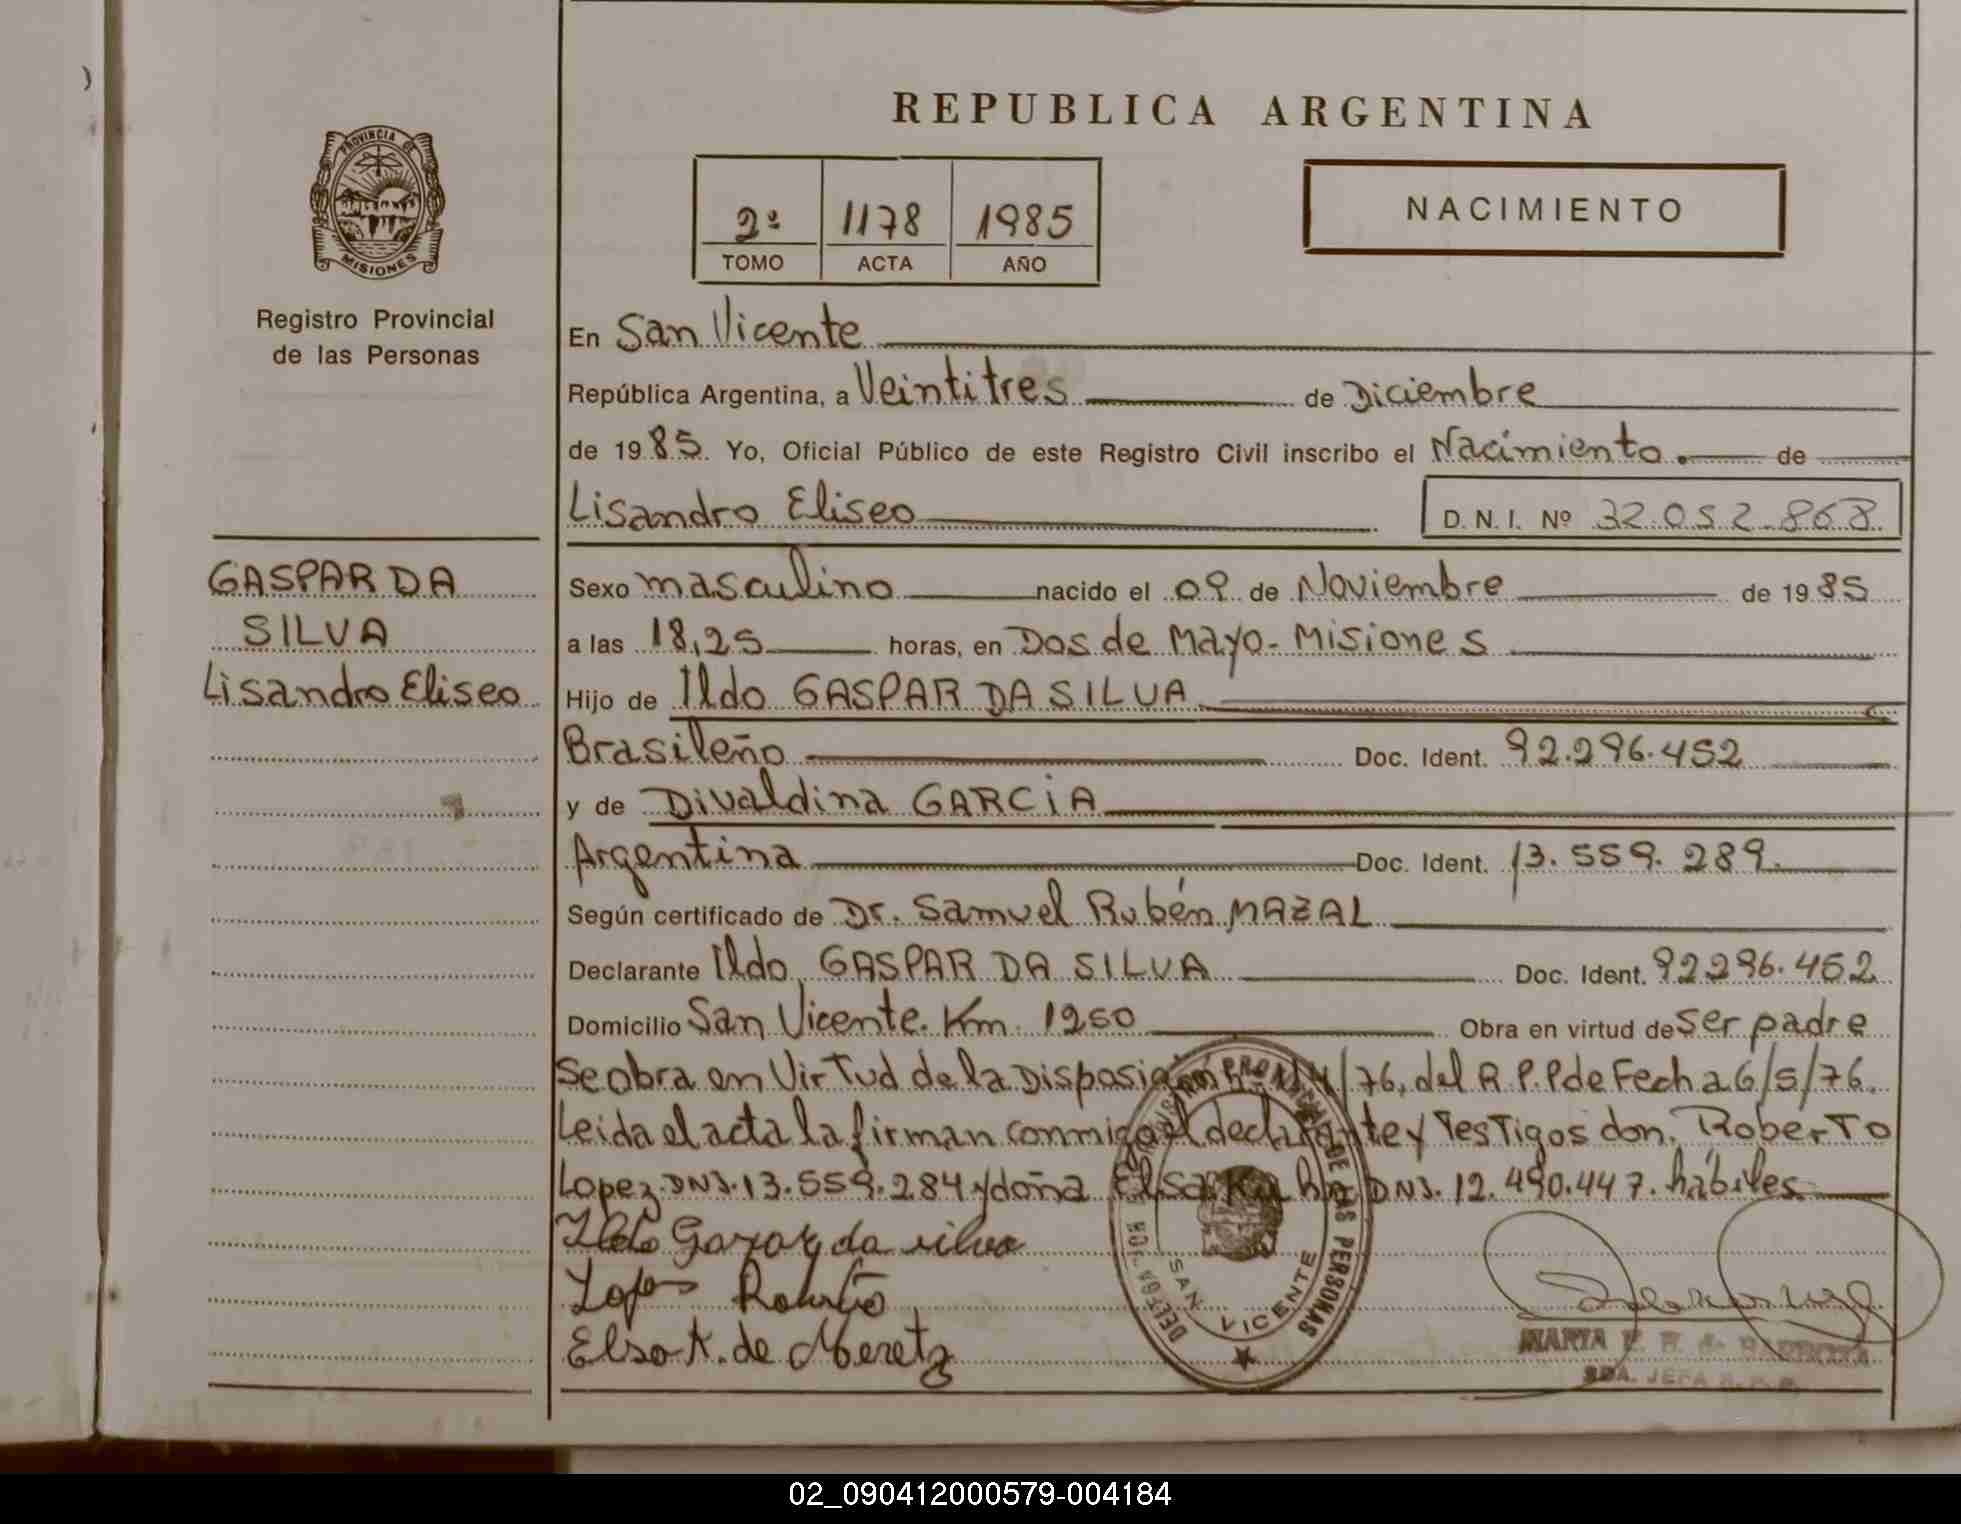 REPUBLICA ARGENTINA
PROVINCIA DE
MISIONES
Registro Provincial
de las Personas
2º 1178 1985
TOMO ACTA AÑO
NACIMIENTO
En San Vicente
República Argentina, a Veintitres de Diciembre
de 1985. Yo, Oficial Público de este Registro Civil inscribo el Nacimiento. de
Lisandro Eliseo D.N.I. Nº 32.052.868
GASPAR DA
SILVA
Lisandro Eliseo
Sexo masculino nacido el 09 de Noviembre de 1985
a las 18,25 horas, en Dos de Mayo - Misiones
Hijo de Ildo GASPAR DA SILVA
Brasileño Doc. Ident. 92.296.452
y de Divaldina GARCIA
Argentina Doc. Ident. 13.559.289.
Según certificado de Dr. Samuel Rubén MAZAL
Declarante Ildo GASPAR DA SILVA Doc. Ident. 92296.452
Domicilio San Vicente. Km. 1250 Obra en virtud de Ser padre
Se obra en Virtud de la Disposición /76, del R.P.P de Fecha 6/5/76.
Leida el acta la firman conmigo el declarante y Testigos don. Roberto
Lopez DNI. 13.559.284 y doña Elsa DNI. 12.490.447. hábiles
Ildo Gaspar da silva
Lopes Roberto
Elsa K. de Meretz
DE LAS PERSONAS
SAN VICENTE
MARIA E. B. de
SDA. JEFA R.P.P.
02_090412000579-004184